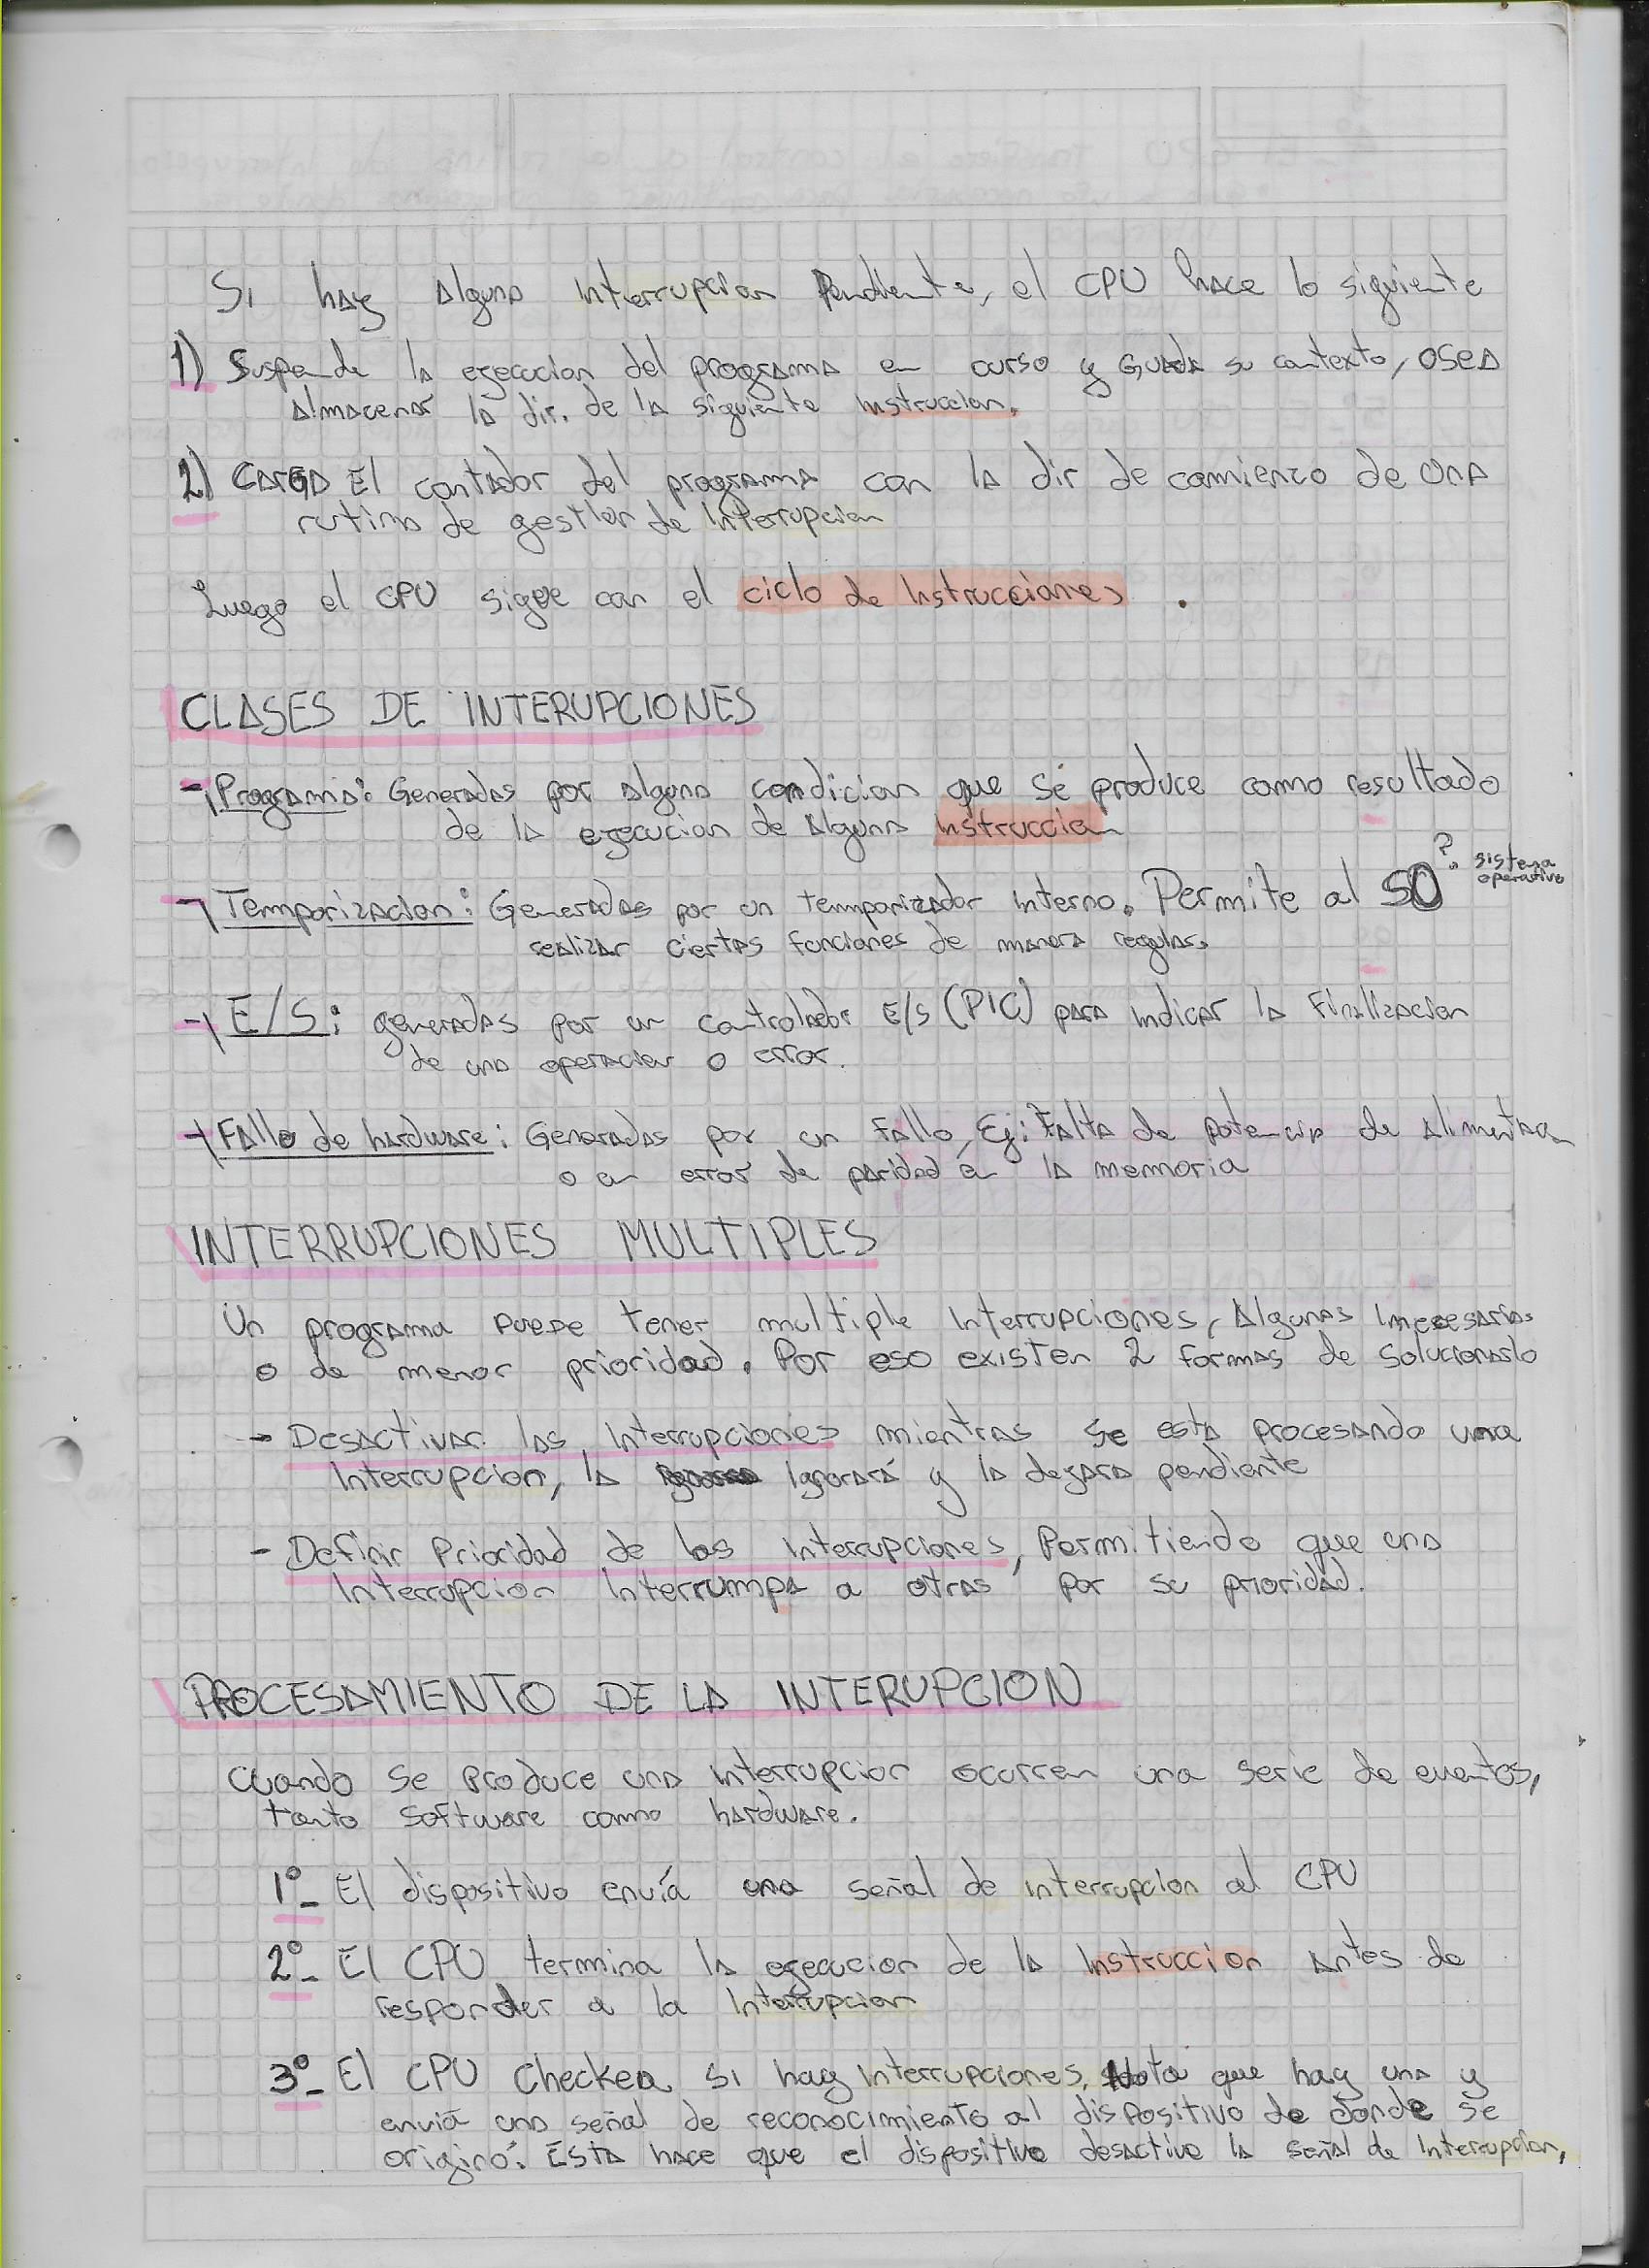 Si hay alguna interrupcion Pendiente, el CPU hace lo siguiente
1) Suspende la ejecucion del programa en curso y Guarda su contexto, osea
almacenar la dir. de la siguiente instruccion.
2) CARGA El contador del programa con la dir de comienzo de una
rutina de gestion de Interrupcion
Luego el CPU sigue con el ciclo de Instrucciones .
CLASES DE INTERUPCIONES
- Programa: Generadas por alguna condicion que se produce como resultado
de la ejecucion de alguna instruccion
- Temporizacion: Generadas por un temporizador interno. Permite al SO ? sistema
operativo
realizar ciertas funciones de manera regular.
- E/S: generadas por un controlador E/S (PIC) para indicar la Finalizacion
de una operacion o error.
- Fallo de hardware: Generadas por un Fallo, Ej: Falta de potencia de alimentacion
o un error de paridad en la memoria
INTERRUPCIONES MULTIPLES
Un programa puede tener multiple Interrupciones, Algunas Innecesarias
o de menor prioridad. Por eso existen 2 formas de solucionarlo
- Desactivar las Interrupciones mientras se esta procesando una
Interrupcion, la ignorará y la dejara pendiente
- Definir Prioridad de las Interrupciones, Permitiendo que una
Interrupcion Interrumpa a otras por su prioridad.
PROCESAMIENTO DE LA INTERUPCION
Cuando se produce una interrupcion ocurren una serie de eventos,
tanto software como hardware.
1º- El dispositivo envía una señal de interrupcion al CPU
2º- El CPU termina la ejecucion de la Instruccion antes de
responder a la Interrupcion
3º- El CPU Checkea si hay Interrupciones, Nota que hay una y
envia una señal de reconocimiento al dispositivo de donde se
origino. Esta hace que el dispositivo desactive la señal de Interrupcion,